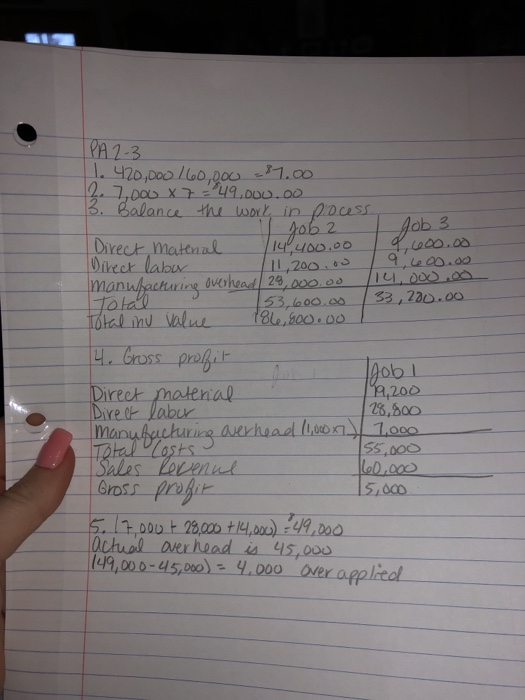 PA 2-3
1. 420,000 / 60,000 = $7.00
2. 7,000 x 7 = $49,000.00
3. Balance the work in process
Job 2 Job 3
Direct Material 14,400.00 9,600.00
Direct labor 11,200.00 9,600.00
manufacturing overhead 28,000.00 14,000.00
Total 53,600.00 33,200.00
Total inv Value 86,800.00
4. Gross profit
Job 1
Direct material 19,200
Direct labor 28,800
Manufacturing overhead (1,000x7) 7,000
Total Costs 55,000
Sales Revenue 60,000
Gross profit 5,000
5. (7,000 + 28,000 + 14,000) = $49,000
Actual overhead is 45,000
(49,000-45,000) = 4,000 over applied